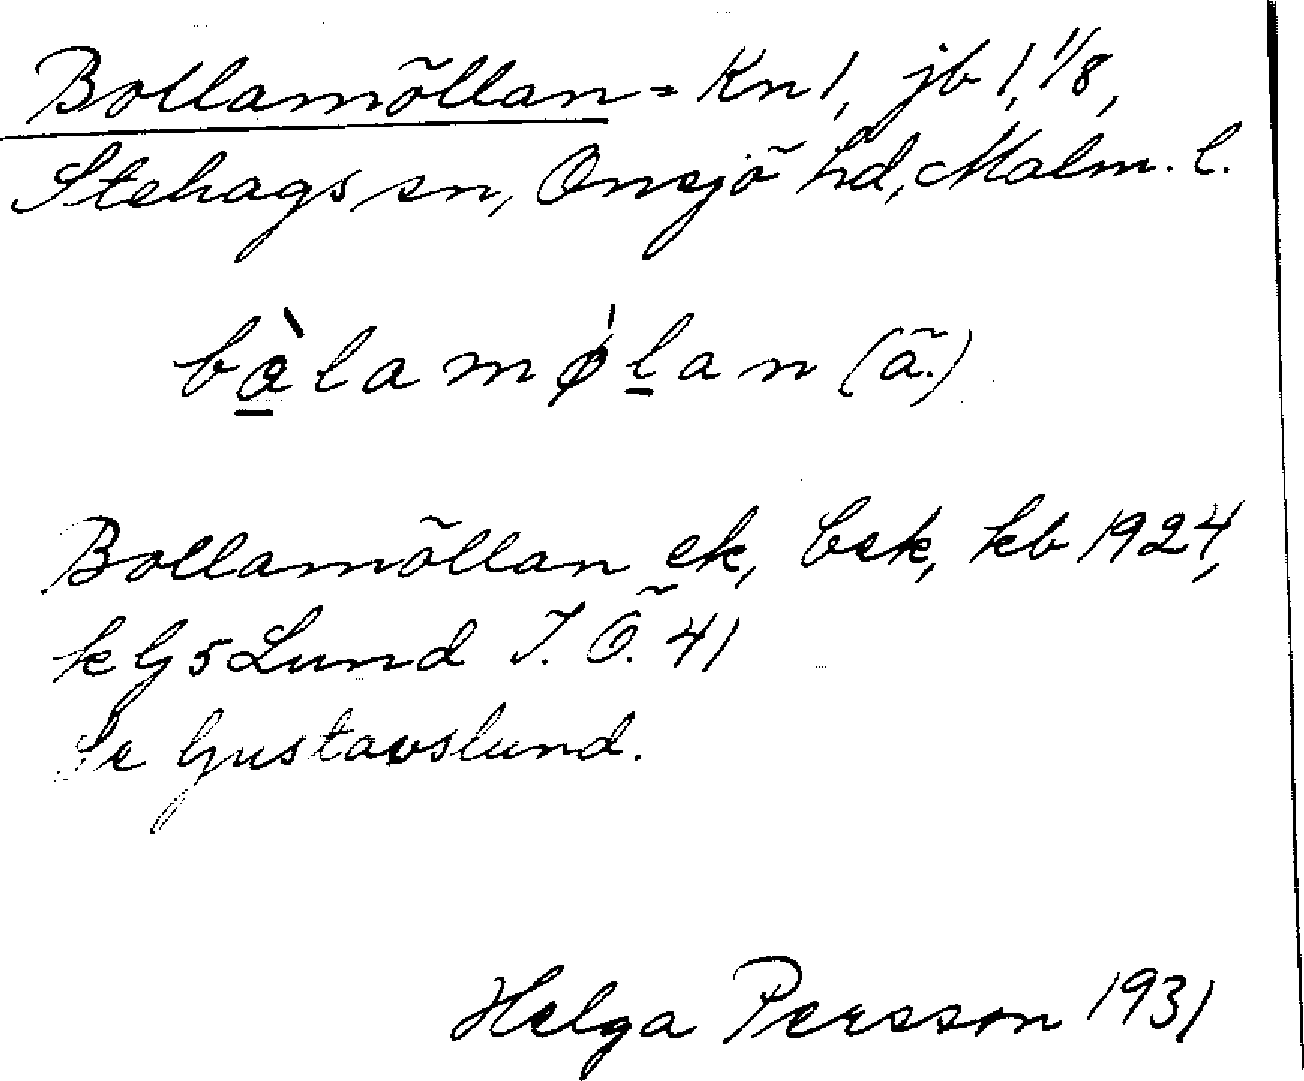 Bollamöllan = Kn 1, jb 1, 1/8,
Stehags sn, Onsjö hd, Malm. l.
bò̲lamø̍l̲an (ä.)
Bollamöllan ek, bek, kb 1924,
k G 5 Lund I. Ö. 41
Se Gustavslund.
Helga Persson 1931